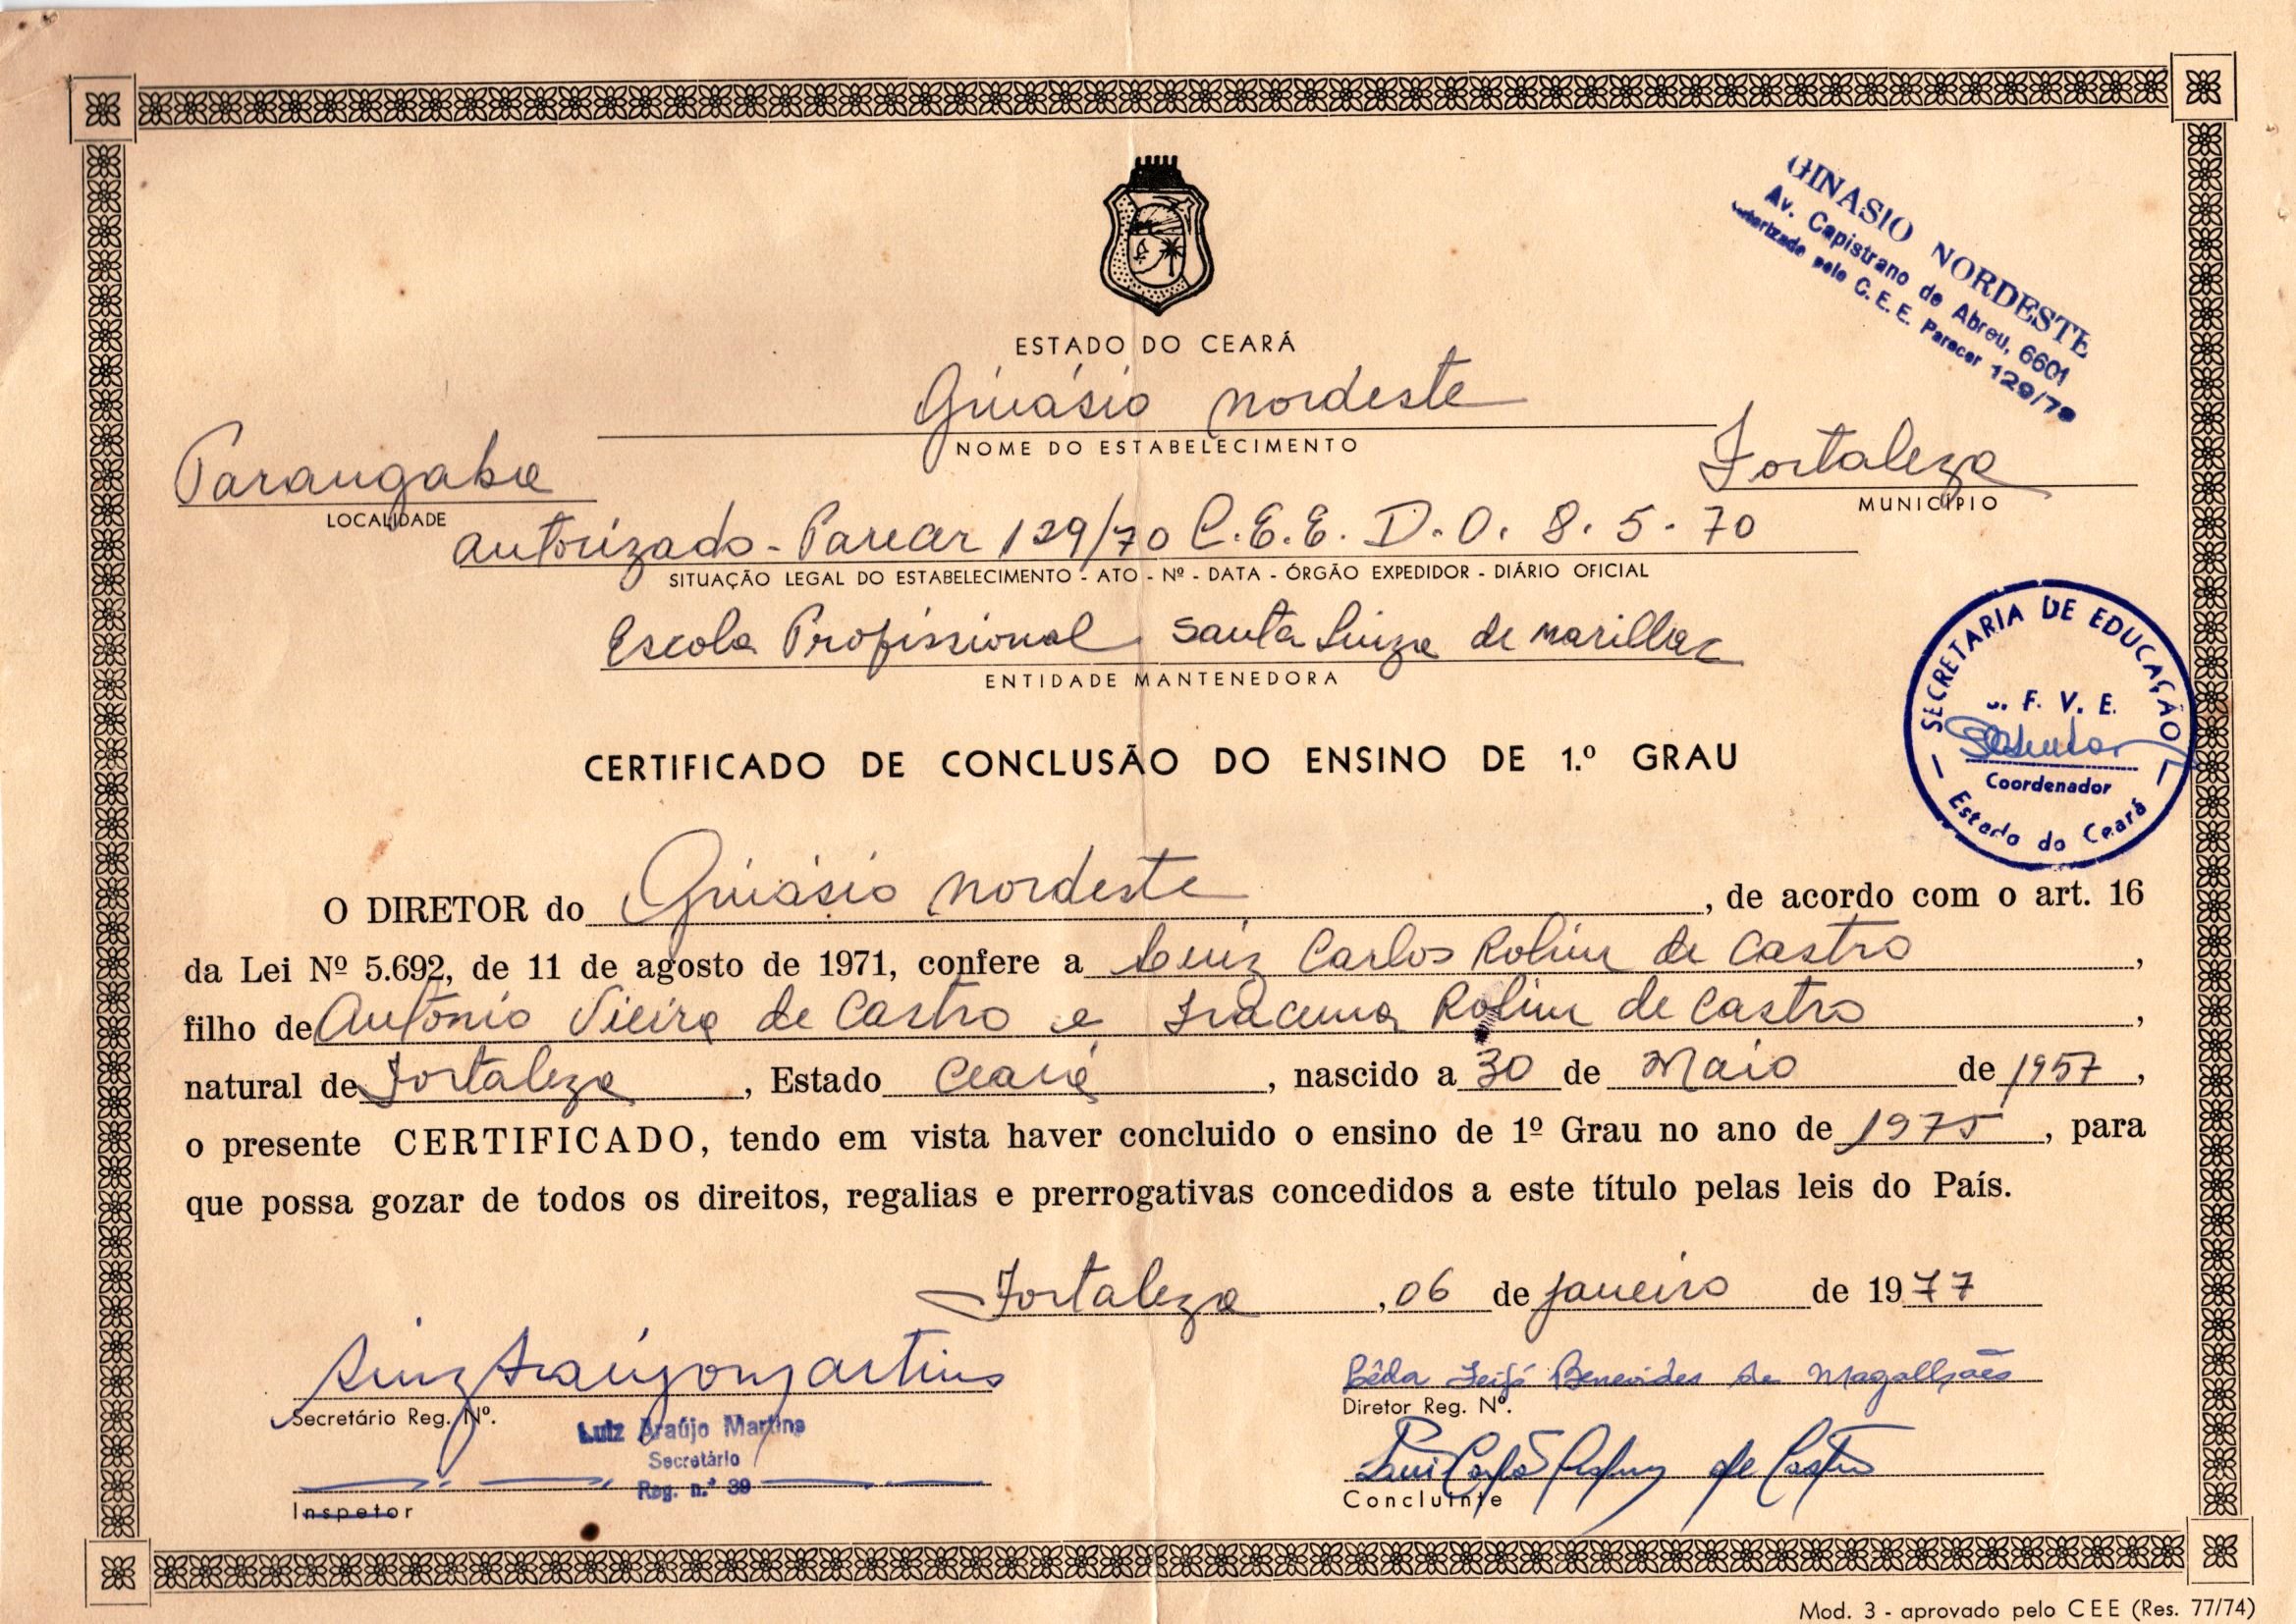 GINASIO NORDESTE
Av. Capistrano de Abreu, 6601
autorizado pelo C. E. E. Parecer 129/70
ESTADO DO CEARÁ
Ginásio Nordeste
NOME DO ESTABELECIMENTO
Parangaba
LOCALIDADE
Fortaleza
MUNICÍPIO
autorizado - Parecer 129/70 C.E.E. D.O. 8.5.70
SITUAÇÃO LEGAL DO ESTABELECIMENTO - ATO - Nº - DATA - ÓRGÃO EXPEDIDOR - DIÁRIO OFICIAL
Escola Profissional Santa Luiza de Marillac
ENTIDADE MANTENEDORA
SECRETARIA DE EDUCAÇÃO
F. V. E.
Coordenador
Estado do Ceará
CERTIFICADO DE CONCLUSÃO DO ENSINO DE 1.º GRAU
O DIRETOR do Ginásio Nordeste, de acordo com o art. 16
da Lei Nº 5.692, de 11 de agosto de 1971, confere a Luiz Carlos Rolim de Castro,
filho de Antônio Vieira de Castro e Iracema Rolim de Castro,
natural de Fortaleza, Estado Ceará, nascido a 30 de Maio de 1957,
o presente CERTIFICADO, tendo em vista haver concluido o ensino de 1º Grau no ano de 1975, para
que possa gozar de todos os direitos, regalias e prerrogativas concedidos a este título pelas leis do País.
Fortaleza, 06 de janeiro de 1977
Luiz Araújo Martins
Secretário Reg. Nº.
Luiz Araújo Martins
Secretário
Reg. n.º 39
Inspetor
Feijó Benevides de Magalhães
Diretor Reg. Nº.
Luiz Carlos Rolim de Castro
Concluinte
Mod. 3 - aprovado pelo CEE (Res. 77/74)